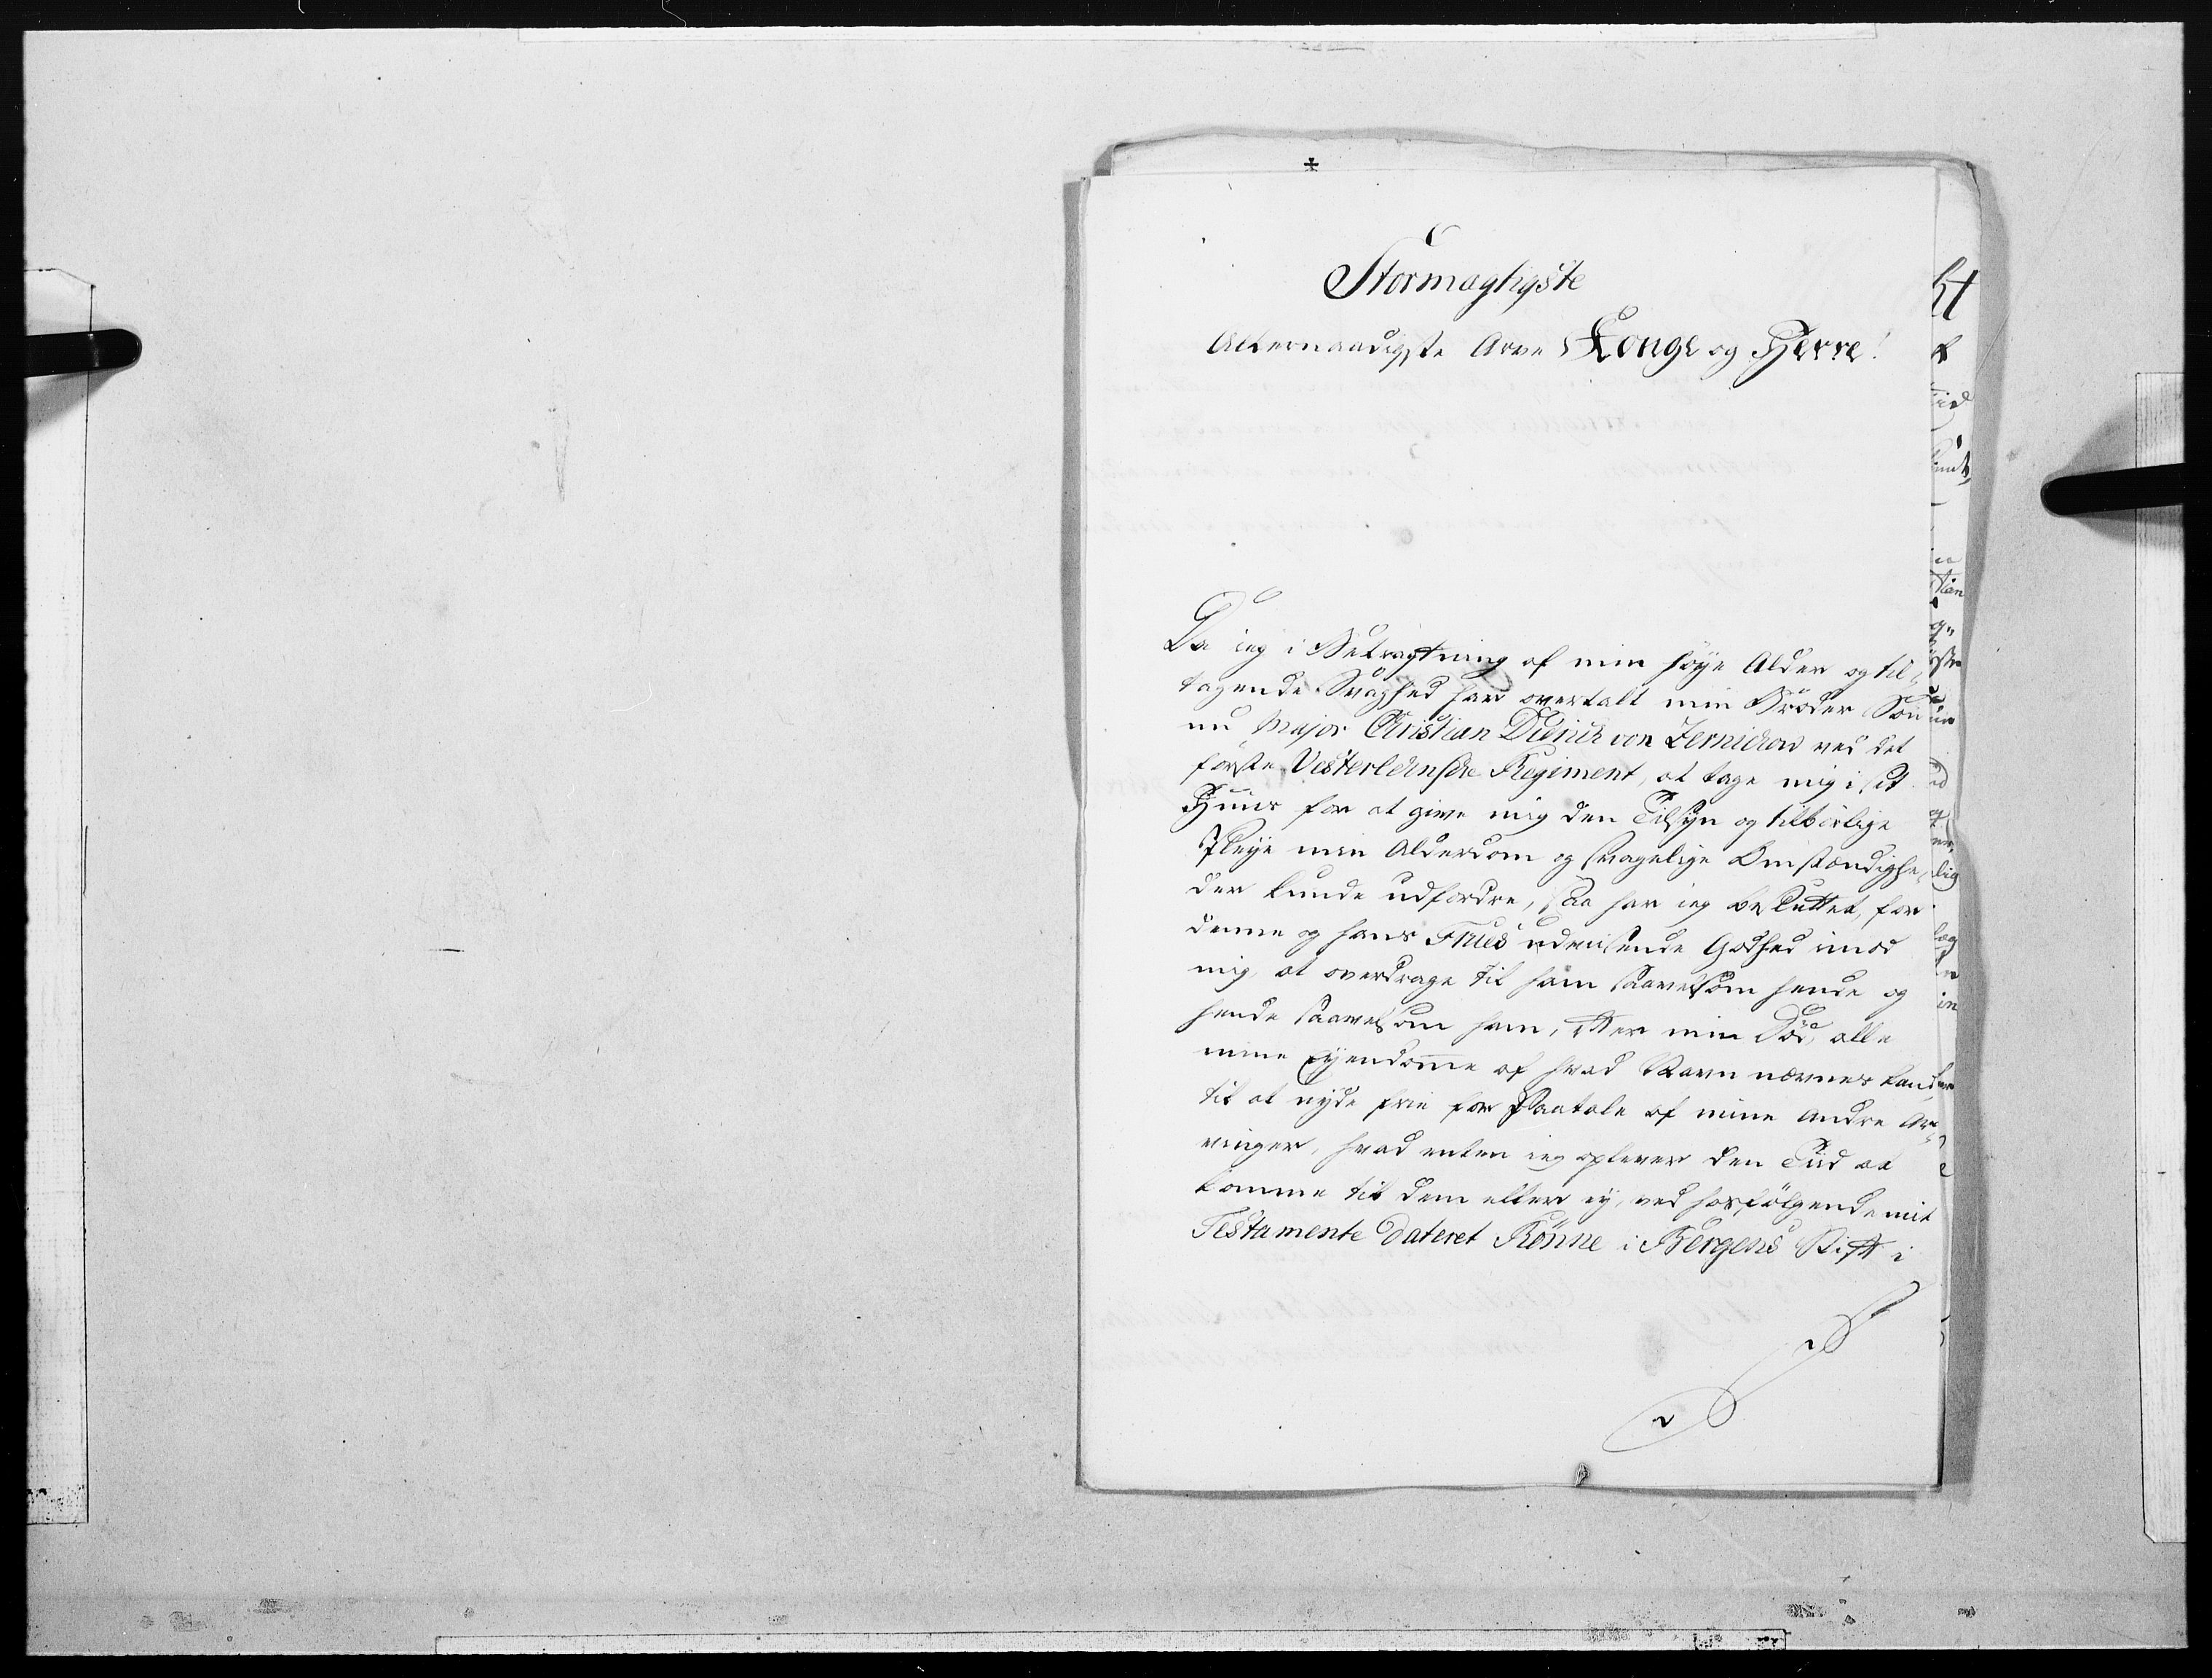 Stormægtigste
Allernaadigste Arve Konge og Herre!
Da ieg i Betragtning af min høye Alder og til-
tagende Svaghed har overtalt min Broder Søn
nu Major Christian Diderich von Zernichow ved det
første Vesterlehnske Regiment, at tage mig i sit
Huus for at give mig den Tilsyn og tilbørlige
Pleye min Alderdom og svagelige Omstændighe-
der kunde udfordre, saa har ieg besluttet, for
denne og hans Frues udvisende Godhed imod
mig, at overdrage til ham saavelsom hende og
hende saavelsom ham, efter min Død, alle
mine Eyendomme af hvad Navn nævnes kand,
til at nyde frie for Paatale af mine andre Ar-
vinger, hvad enten ieg oplever den Tiid at
komme til dem eller ey, ved hosfølgende mit
Testamente dateret Rönne i Bergens Stift i